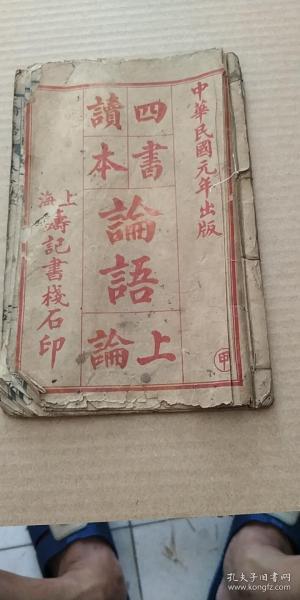 中華民國元年出版
四書
讀本
論語
上論
上海
壽記書棧石印
甲
孔夫子旧书网
www.kongfz.com